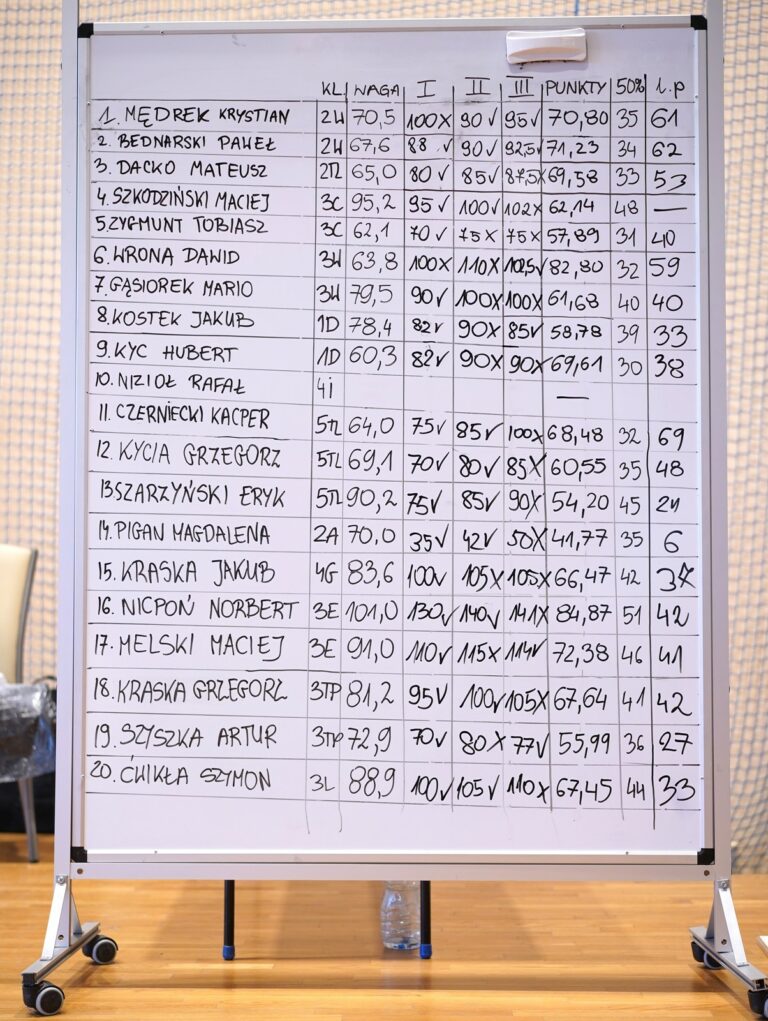 KL WAGA I II III PUNKTY 50% l.p
1. MĘDREK KRYSTIAN 2W 70,5 100X 90✓ 95✓ 70,80 35 61
2. BEDNARSKI PAWEŁ 2W 67,6 88✓ 90✓ 92,5✓ 71,23 34 62
3. DACKO MATEUSZ 2TL 65,0 80✓ 85✓ 87,5X 69,58 33 53
4. SZKODZIŃSKI MACIEJ 3C 95,2 95✓ 100✓ 102X 62,14 48 —
5. ZYGMUNT TOBIASZ 3C 62,1 70✓ 75X 75X 57,89 31 40
6. WRONA DAWID 3W 63,8 100X 110X 102,5✓ 82,80 32 59
7. GĄSIOREK MARIO 3W 79,5 90✓ 100X 100X 61,68 40 40
8. KOSTEK JAKUB 1D 78,4 82✓ 90X 85✓ 58,78 39 33
9. KYC HUBERT 1D 60,3 82✓ 90X 90X 69,61 30 38
10. NIZIOŁ RAFAŁ 4i —
11. CZERNIECKI KACPER 5TL 64,0 75✓ 85✓ 100X 68,48 32 69
12. KYCIA GRZEGORZ 5TL 69,1 70✓ 80✓ 85X 60,55 35 48
13 SZARZYŃSKI ERYK 5TL 90,2 75✓ 85✓ 90X 54,20 45 21
14. PIGAN MAGDALENA 2A 70,0 35✓ 42✓ 50X 41,77 35 6
15. KRASKA JAKUB 4G 83,6 100✓ 105X 105X 66,47 42 37
16. NICPOŃ NORBERT 3E 101,0 130✓ 140✓ 141X 84,87 51 42
17. MELSKI MACIEJ 3E 91,0 110✓ 115X 114✓ 72,38 46 41
18. KRASKA GRZEGORZ 3TP 81,2 95✓ 100✓ 105X 67,64 41 42
19. SZYSZKA ARTUR 3TP 72,9 70✓ 80X 77✓ 55,99 36 27
20. ĆWIKŁA SZYMON 3L 88,9 100✓ 105✓ 110X 67,45 44 33